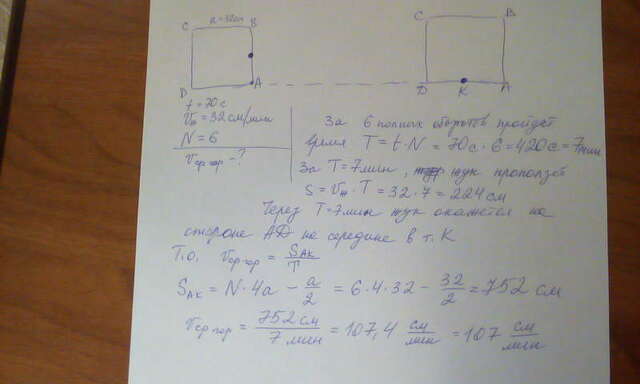 C a=32см B
D A
C B
D K A
t=70c
Vж=32 см/мин
N=6
Vср гор-?
За 6 полных оборотов пройдет
время T = t·N = 70c·6 = 420c = 7мин
За T=7мин, жук проползёт
S = Vж·T = 32·7 = 224 см
Через T=7мин жук окажется на
стороне AD на середине в т. K
Т.о. Vср гор = SAK/T
SAK = N·4a - a/2 = 6·4·32 - 32/2 = 752 см
Vср гор = 752 см/7 мин = 107,4 см/мин = 107 см/мин